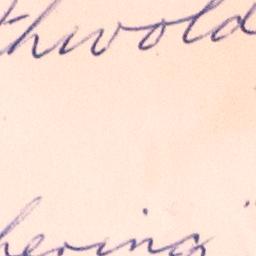 thwold
hering"